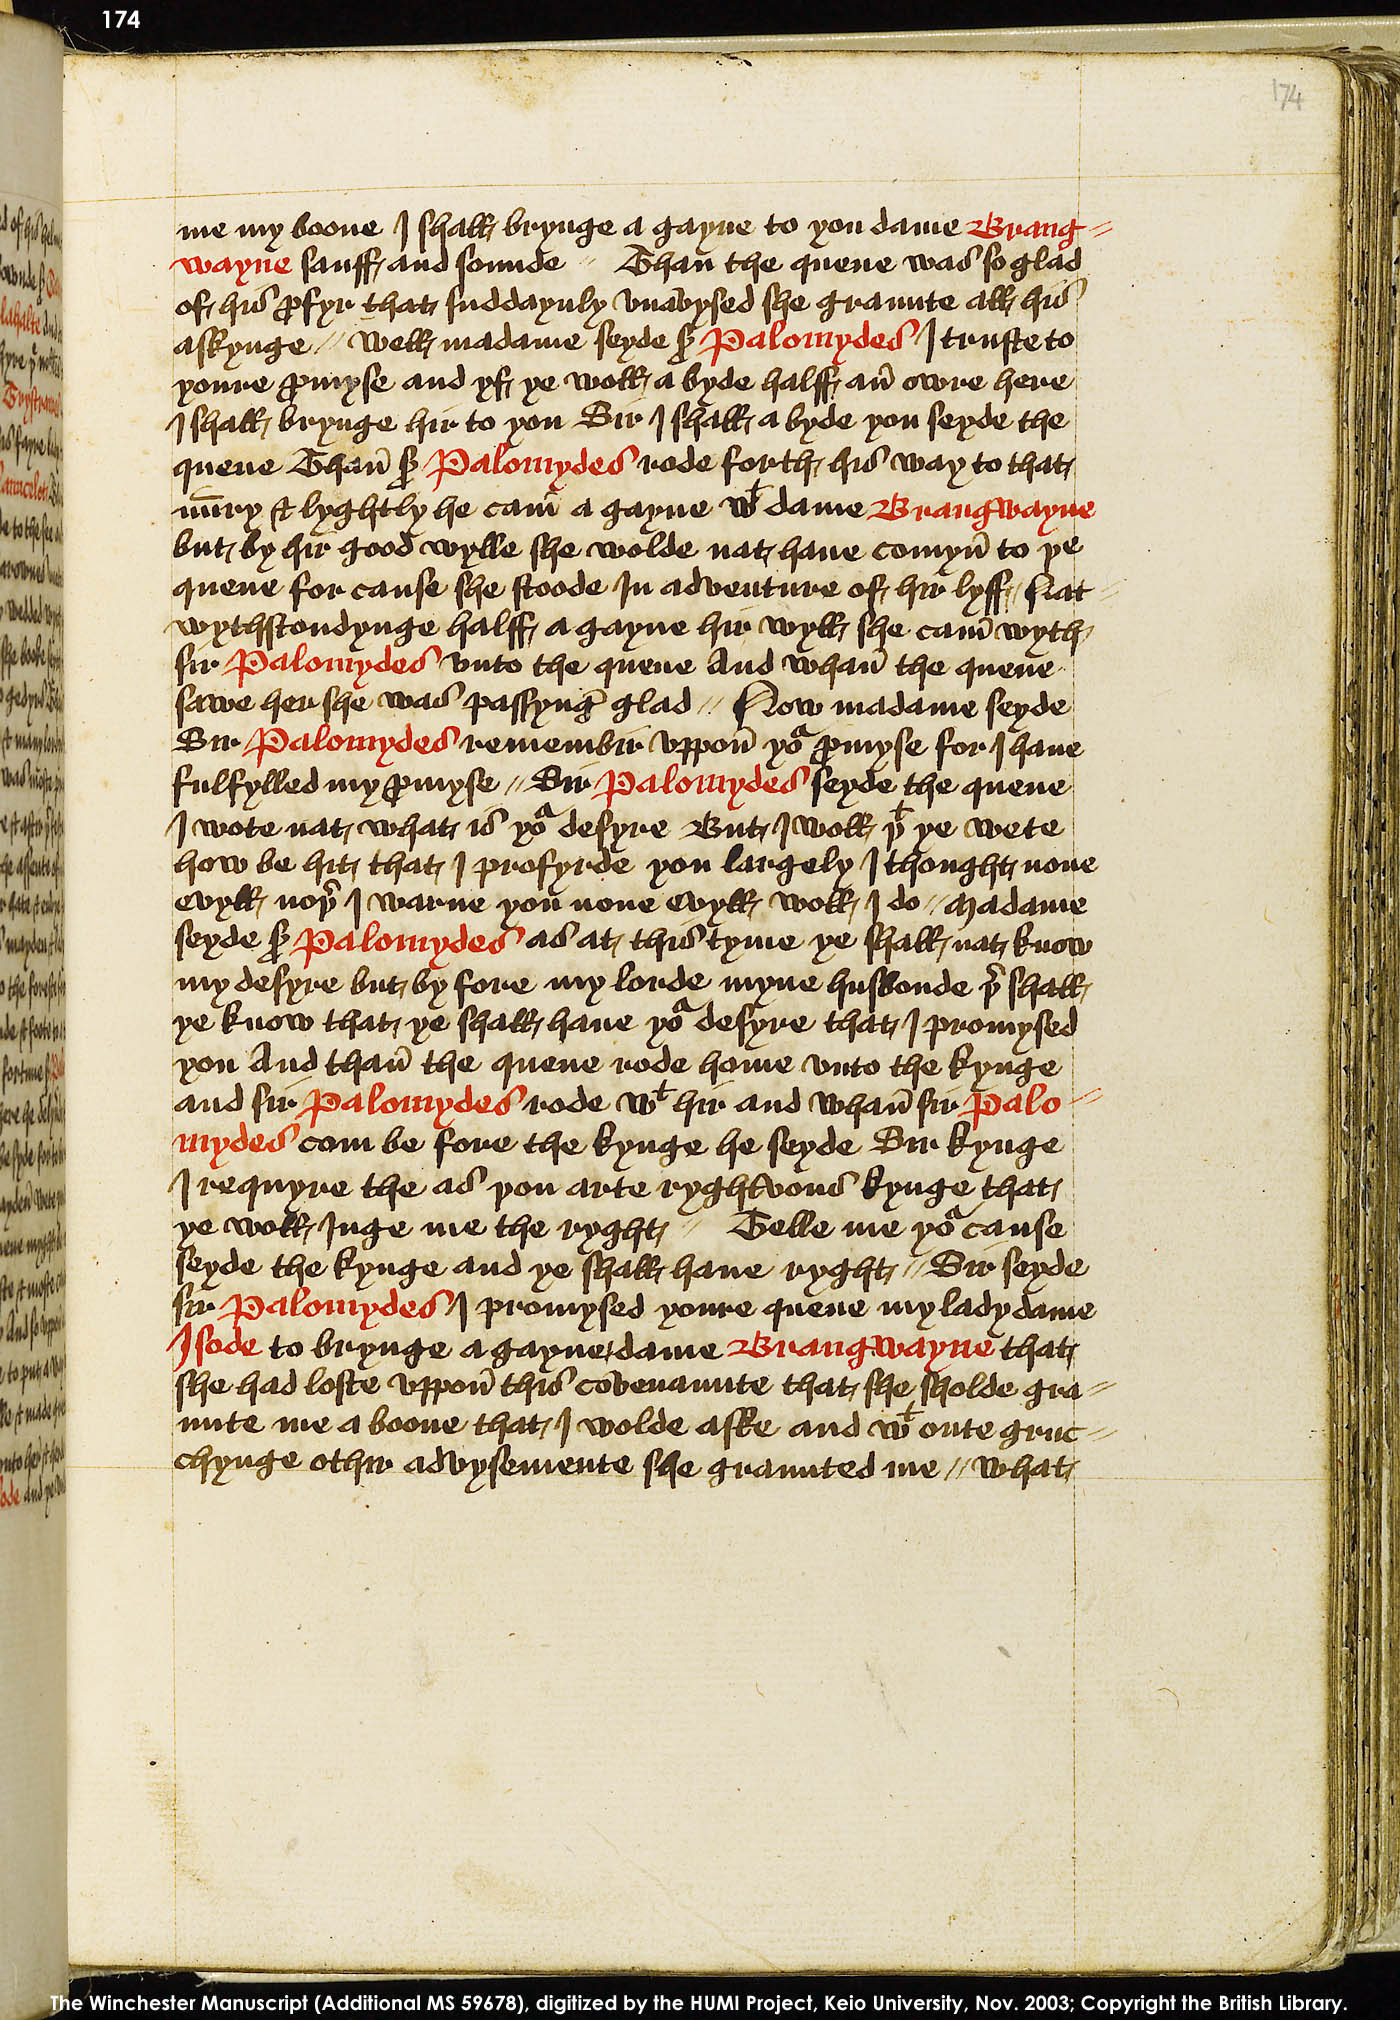 174
174
me my boone I shall brynge a gayne to you dame Brang⸗
wayne sauff and sounde // Than the quene was so glad
of his ꝓfyr that suddaynly vnavysed she graunte all his
askynge // Well madame seyde sꝛ Palomydes I truste to
youre ꝓmyse and yf ye woll a byde halff an̄ owre here
I shall brynge hir to you Sir I shall a byde you seyde the
quene Than̄ sꝛ Palomydes rode forth his way to that
nūry & lyghtly he cam̄ a gayne wᵗ dame Brangwayne
but by hir good wylle she wolde nat haue comyn̄ to yᵉ
quene for cause she stoode In adventure of hir lyff // Nat⸗
wythstondynge halff a gayne hir wyll she cam̄ wyth
sir Palomydes vnto the quene And whan̄ the quene
sawe her she was passynḡ glad // Now madame seyde
Sir Palomydes remembir vppon̄ yoᵃ ꝓmyse for I haue
fulfylled my ꝓmyse // Sir Palomydes seyde the quene
I wote nat what is yoᵃ desyre But I woll yᵗ ye wete
how be hit that I profyrde you largely I thought none
evyll noyꝛ I warne you none evyll woll I do // Madame
seyde sꝛ Palomydes as at this tyme ye shall nat know
my desyre but by fore my lorde myne husbonde yꝛ shall
ye know that ye shall haue yoᵃ desyre that I promysed
you And than̄ the quene rode home vnto the kynge
and sir Palomydes rode wᵗ hir and whan̄ sir Palo⸗
mydes com be fore the kynge he seyde Sir kynge
I requyre the as you arte ryghtvous kynge that
ye woll Juge me the ryght // Telle me yoᵃ cause
seyde the kynge and ye shall haue ryght // Sir seyde
sir Palomydes I promysed youre quene my lady dame
Isode to brynge a gayne dame Brangwayne that
she had loste vppon̄ this covenaunte that she sholde gra⸗
unte me a boone that I wolde aske and wᵗ oute gruc⸗
chynge othir advysemente she graunted me // What
The Winchester Manuscript (Additional MS 59678), digitized by the HUMI Project, Keio University, Nov. 2003; Copyright the British Library.